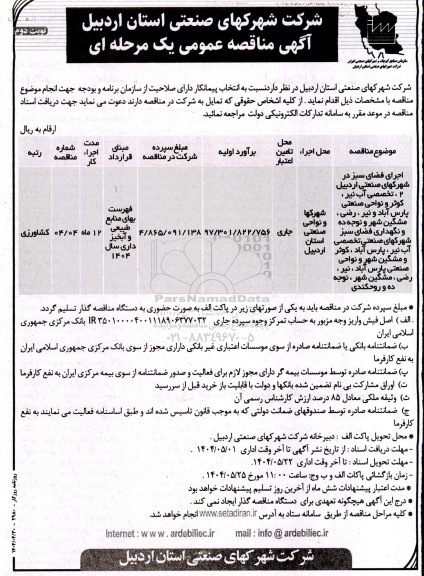 شرکت شهرکهای صنعتی استان اردبیل
آگهی مناقصه عمومی یک مرحله ای
نوبت دوم
شرکت شهرکهای صنعتی استان اردبیل در نظر دارد نسبت به انتخاب پیمانکار دارای صلاحیت از سازمان برنامه و بودجه جهت انجام موضوع
مناقصه با مشخصات ذیل اقدام نماید . از کلیه اشخاص حقوقی که تمایل به شرکت در مناقصه دارند دعوت می نماید جهت دریافت اسناد
مناقصه در موعد مقرر به سامانه تدارکات الکترونیکی دولت مراجعه نمائید.
ارقام به ریال
موضوع مناقصه | محل اجراء | محل تامین اعتبار | برآورد اولیه | مبلغ سپرده شرکت در مناقصه | مبنای قرارداد | مدت اجراء کار | شماره مناقصه | رتبه
اجرای فضای سبز در شهرکهای صنعتی اردبیل ۲ ، تخصصی آب نیر ، کوثر و نواحی صنعتی پارس آباد و نیر ، رضی ، مشگین شهر و نوجه ده و نگهداری فضای سبز شهرکهای صنعتی تخصصی آب نیر ، پارس آباد ، کوثر و مشگین شهر و نواحی صنعتی پارس آباد ، نیر ، رضی ، مشگین شهر ، نوجه ده و روحکندی | شهرکها و نواحی صنعتی استان اردبیل | جاری | ۹۷/۳۰۱/۸۲۲/۷۵۶ | ۴/۸۶۵/۰۹۱/۱۳۸ | فهرست بهای منابع طبیعی و آبخیز داری سال ۱۴۰۴ | ۱۲ ماه | ۰۴/۰۴ | کشاورزی
• مبلغ سپرده شرکت در مناقصه باید به یکی از صورتهای زیر در پاکت الف به صورت حضوری به دستگاه مناقصه گذار تسلیم گردد.
. الف ) اصل فیش واریز وجه مزبور به حساب تمرکز وجوه سپرده جاری IR ۳۵۰۱۰۰۰۰۴۰۰۱۱۱۸۹۰۶۳۷۷۰۳۲ بانک مرکزی جمهوری
اسلامی ایران
ب) ضمانتنامه بانکی یا ضمانتنامه صادره از سوی موسسات اعتباری غیر بانکی دارای مجوز از سوی بانک مرکزی جمهوری اسلامی ایران
به نفع کارفرما
پ) ضمانتنامه صادره توسط موسسات بیمه گر دارای مجوز لازم برای فعالیت و صدور ضمانتنامه از سوی بیمه مرکزی ایران به نفع کارفرما
ت) اوراق مشارکت بی نام تضمین شده بانکها و دولت با قابلیت باز خرید قبل از سررسید
ث) وثیقه ملکی معادل ۸۵ درصد ارزش کارشناس رسمی آن
ج) ضمانتنامه صادره توسط صندوقهای ضمانت دولتی که به موجب قانون تاسیس شده اند و طبق اساسنامه فعالیت می نمایند به نفع
کارفرما
• محل تحویل پاکت الف : دبیرخانه شرکت شهرکهای صنعتی اردبیل .
- مهلت دریافت اسناد : از تاریخ نشر آگهی تا آخر وقت اداری ۱۴۰۴/۰۵/۰۱ .
- مهلت تحویل اسناد : تا آخر وقت اداری ۱۴۰۴/۰۵/۲۲.
- زمان بازگشائی پاکات الف و ب وج: ساعت ۱۱:۰۰ مورخ ۱۴۰۴/۰۵/۲۵ .
• مدت اعتبار پیشنهادات شش ماه از آخرین روز تسلیم پیشنهادات خواهد بود
• درج این آگهی هیچگونه تعهدی برای دستگاه مناقصه گذار ایجاد نمی کند .
• کلیه مراحل مناقصه از طریق سامانه ستاد به آدرس www.setadiran.ir انجام خواهد شد.
Internet : www . ardebiliec.ir mail : info @ ardebiliec.ir
شرکت شهرکهای صنعتی استان اردبیل
ParsNamadData
۰۲۱-۸۸۳۴۹۶۷۰-۵